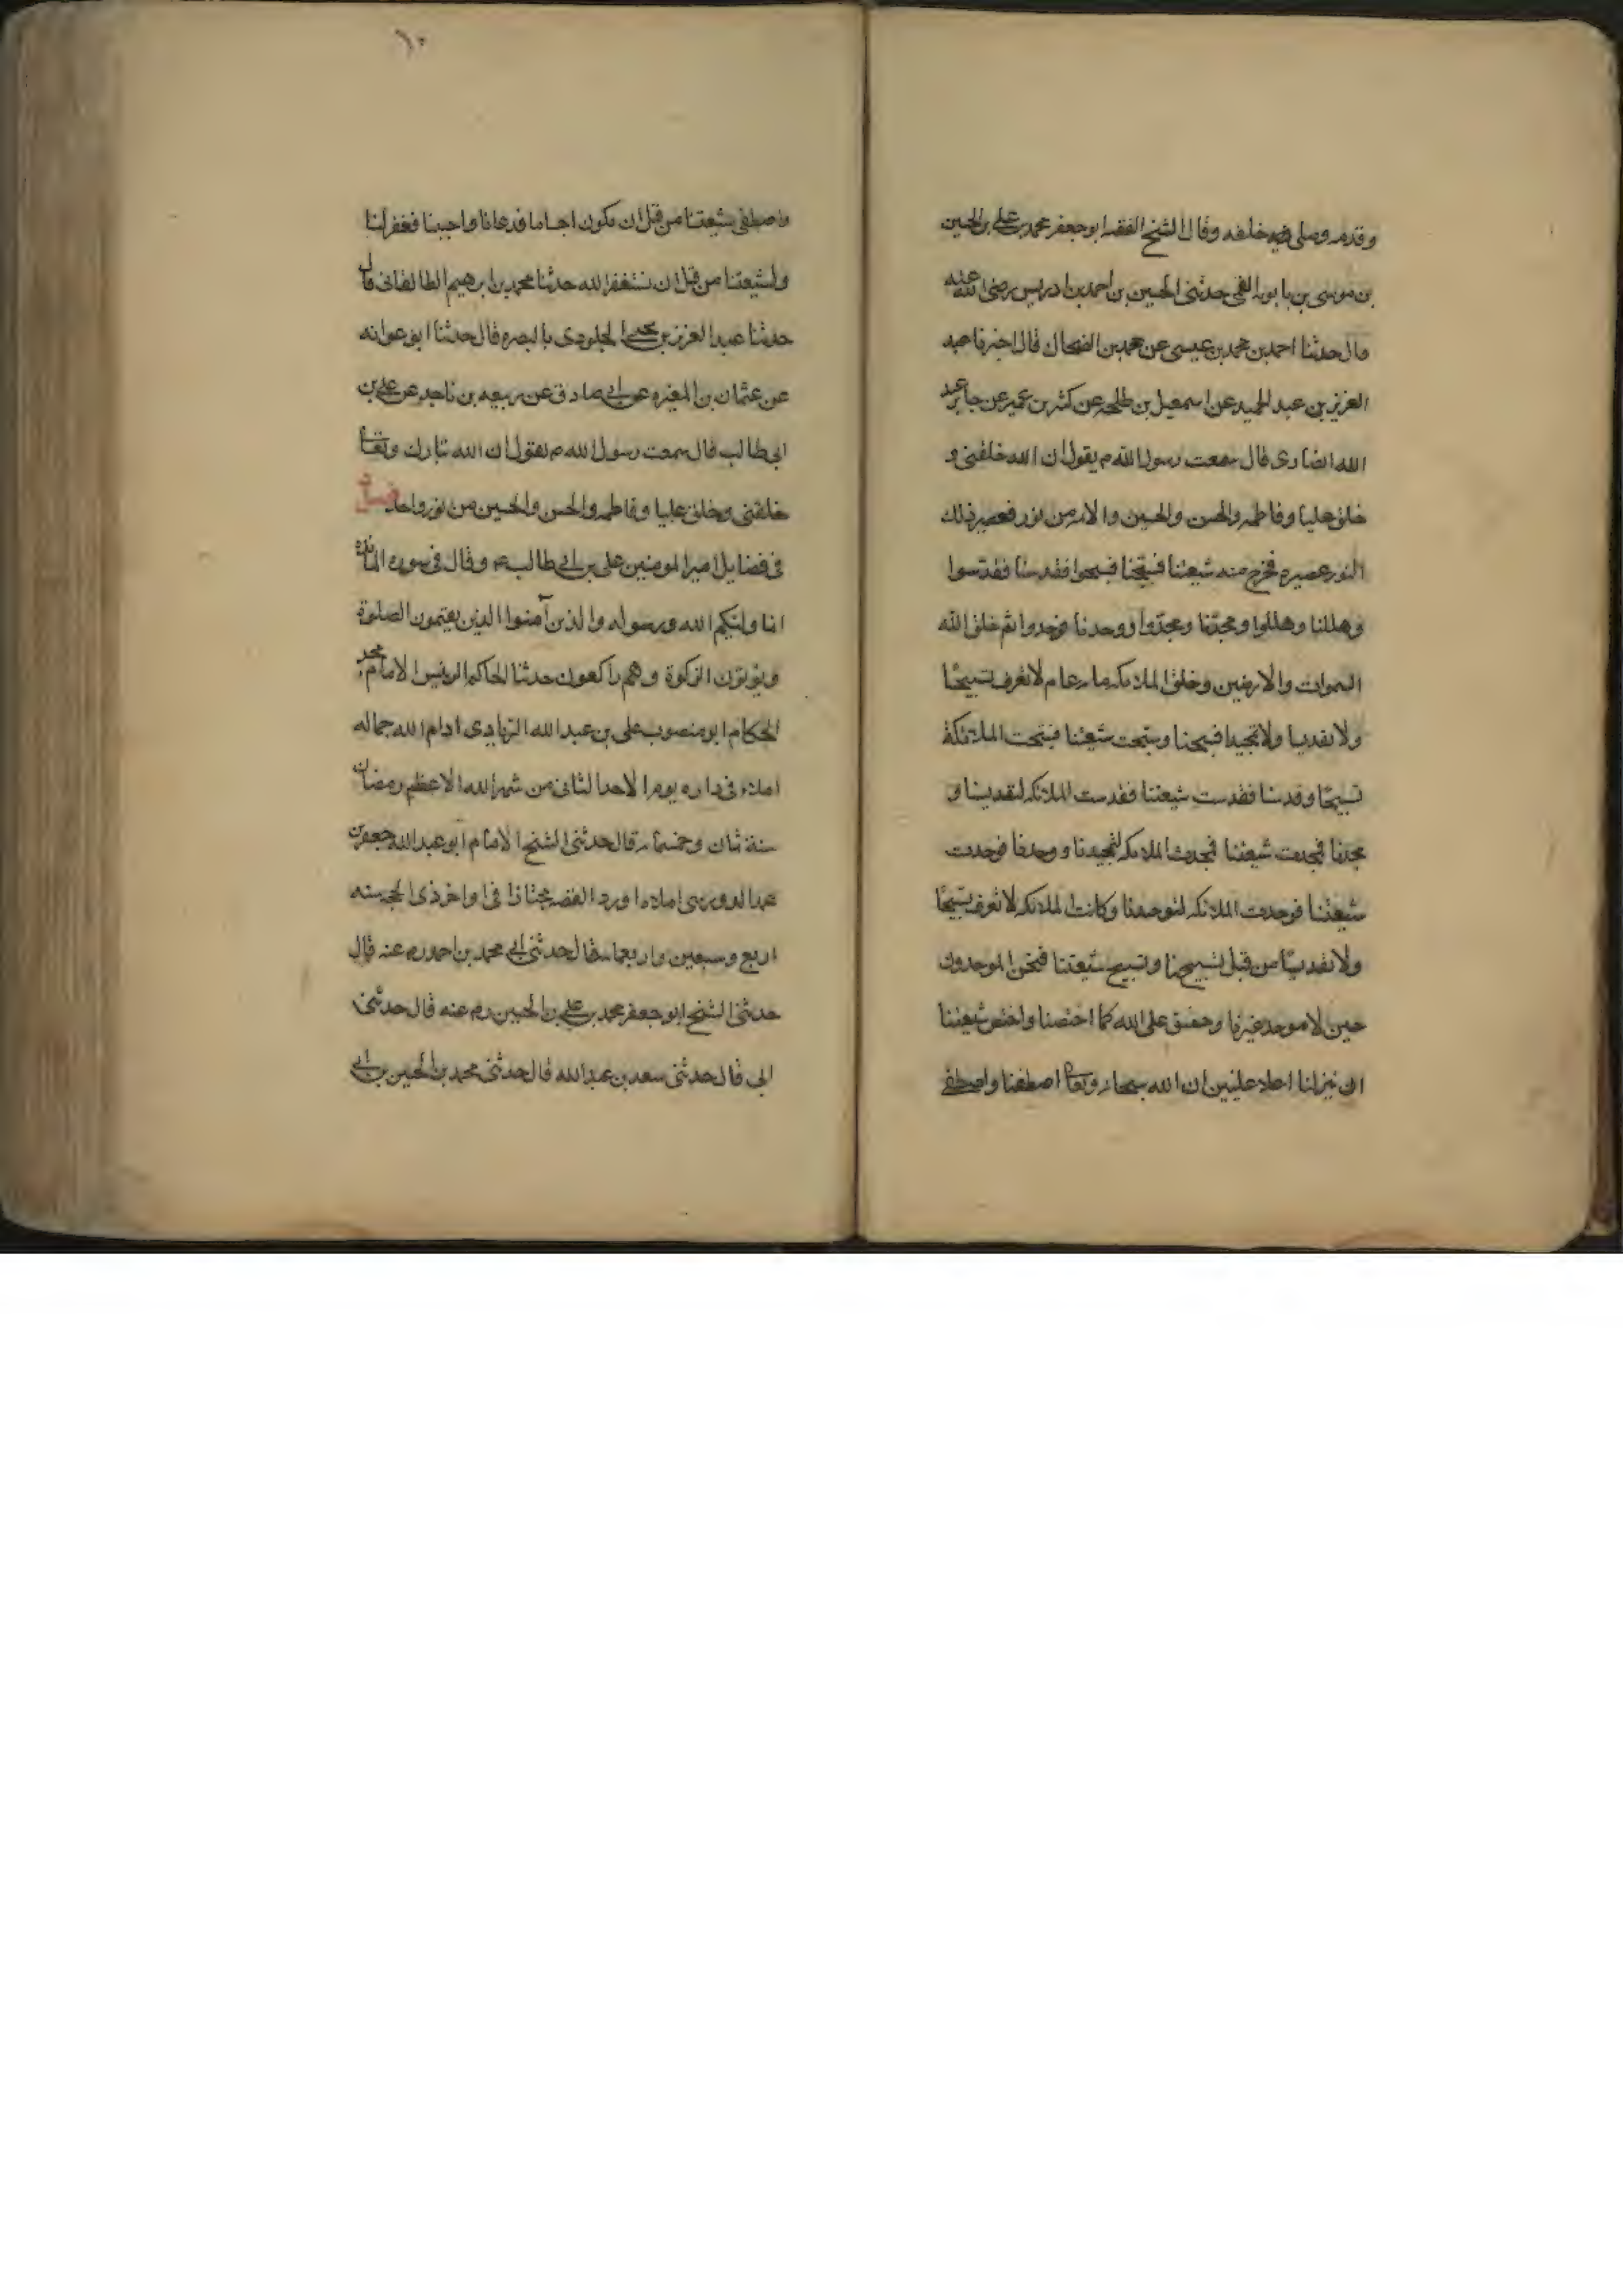 وقدمه وصلى خلفه وقال الشيخ الفقيه ابو جعفر محمد بن علي بن الحسين
بن موسى بن بابويه القمي حدثني الحسين بن احمد بن ادريس رضى الله عنه
قال حدثنا احمد بن محمد بن عيسى عن محمد بن الضحاك قال اخبرنا عبد
العزيز بن عبد الحميد عن اسمعيل بن طلحة عن كثير بن عمير عن جابر بن عبد
الله انصارى قال سمعت رسول الله ص يقول ان الله خلقنى و
خلق عليا وفاطمه والحسن والحسين والائمه من نور فعصر ذلك
النور عصره فخرج منه شيعتنا فسبحنا فسبحوا فقدسنا فقدسوا
وهللنا وهللوا ومجدنا ومجدوا ووحدنا فوحدوا ثم خلق الله
السموات والارضين وخلق الملائكه مايه عام لا تعرف تسبيحا
ولا تقديسا ولا تمجيدا فسبحنا وسبحت شيعتنا فسبحت الملائكة
تسبيحا وقدسنا فقدست شيعتنا فقدست الملائكه لتقديسنا و
مجدنا فمجدت شيعتنا فمجدت الملائكه لتمجيدنا ووحدنا فوحدت
شيعتنا فوحدت الملائكه لتوحيدنا وكانت الملائكه لا تعرف تسبيحا
ولا تقديسا من قبل تسبيحنا وتسبيح شيعتنا فنحن الموحدون
حين لا موحد غيرنا وحقيق على الله كما اختصنا واختص شيعتنا
ان ينزلنا اعلا عليين ان الله سبحانه وتعالى اصطفنا واصطفى
١٠
واصطفى شيعتنا من قبل ان نكون اجساما فدعانا واجبنا فغفر لنا
ولشيعتنا من قبل ان نستغفر الله حدثنا محمد بن ابرهيم الطالقانى قال
حدثنا عبد العزيز بن يحيى الجلودى بالبصره قال حدثنا ابو عوانه
عن عثمان بن المغيره عن ابي صادق عن ربيعه بن ناجد عن علي بن
ابى طالب قال سمعت رسول الله ص يقول ان الله تبارك وتعالى
خلقنى وخلق عليا وفاطمه والحسن والحسين من نور واحد فصل
فى فضايل امير المومنين على بن ابي طالب ع وقال فى سوره المائده
انما وليكم الله ورسوله والذين آمنوا الذين يقيمون الصلوة
ويؤتون الزكوة وهم راكعون حدثنا الحاكم الرئيس الامام مجد
الحكام ابو منصور على بن عبد الله الزيادى ادام الله جماله
املاء فى داره يوم الاحد الثانى من شهر الله الاعظم رمضان
سنة ثمان وخمسمايه قال حدثنى الشيخ الامام ابو عبد الله جعفر بن
محمد الدوريسى املاء ورد القصبه مجتازا فى اواخر ذى الحجه سنه
اربع وسبعين واربعمايه قال حدثنى ابي محمد بن احمد رض عنه قال
حدثنى الشيخ ابو جعفر محمد بن علي بن الحسين رض عنه قال حدثنى
ابى قال حدثنى سعد بن عبد الله قال حدثنى محمد بن الحسين بن ابي